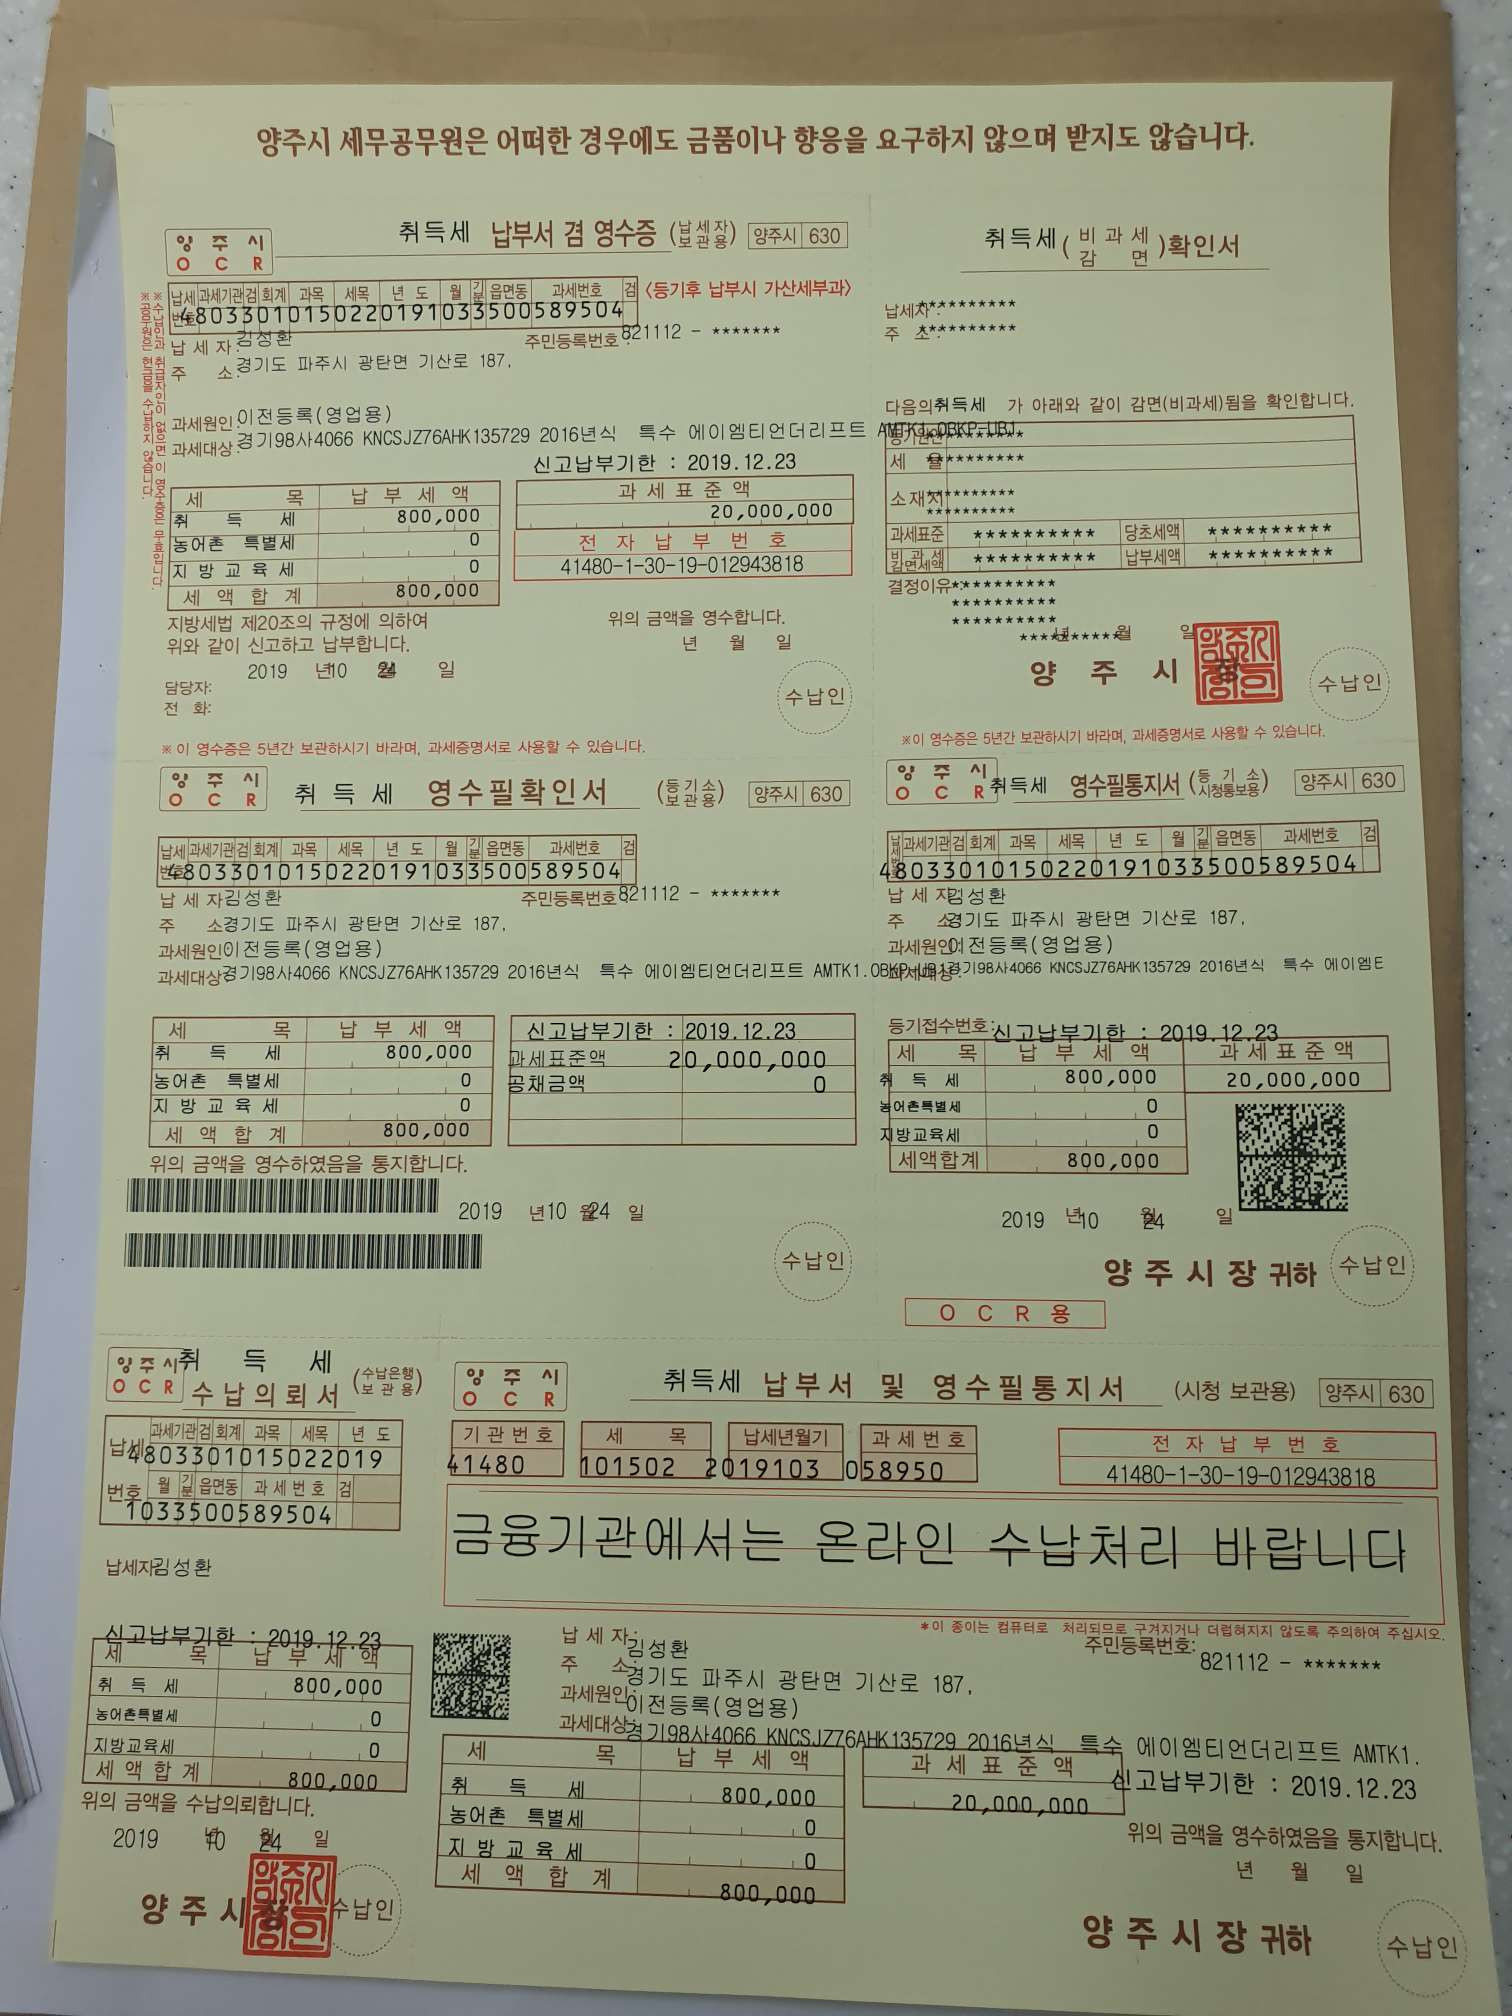 양주시 세무공무원은 어떠한 경우에도 금품이나 향응을 요구하지 않으며 받지도 않습니다.
양 주 시
O C R
취득세 납부서 겸 영수증 (납세자 보관용) 양주시 630
※수납인과 취급자인이 없으면 이 영수증은 무효입니다.
※공무원은 현금을 수납하지 않습니다.
납세번호 과세기관 검 회계 과목 세목 년 도 월 기분 읍면동 과세번호 검 〈등기후 납부시 가산세부과〉
4803301015022019103350058950​4
납 세 자: 김성환 주민등록번호: 821112 - *******
주 소: 경기도 파주시 광탄면 기산로 187,
과세원인: 이전등록(영업용)
과세대상: 경기98사4066 KNCSJZ76AHK135729 2016년식 특수 에이엠티언더리프트 AMTK1.0BKP-UB1
신고납부기한 : 2019.12.23
세 목 납 부 세 액
취 득 세 800,000
농어촌 특별세 0
지 방 교 육 세 0
세 액 합 계 800,000
과 세 표 준 액
20,000,000
전 자 납 부 번 호
41480-1-30-19-012943818
지방세법 제20조의 규정에 의하여
위와 같이 신고하고 납부합니다.
2019 년 10 월 24 일
담당자:
전 화:
위의 금액을 영수합니다.
년 월 일
수납인
※이 영수증은 5년간 보관하시기 바라며, 과세증명서로 사용할 수 있습니다.
취득세 (비과세 감 면) 확인서
납세자: **********
주 소: **********
다음의 취득세 가 아래와 같이 감면(비과세)됨을 확인합니다.
**********
세 율 **********
소재지 **********
**********
과세표준 ********** 당초세액 **********
비과세 감면세액 ********** 납부세액 **********
결정이유: **********
**********
**********
********** 년 월 일
양 주 시 장
수납인
※이 영수증은 5년간 보관하시기 바라며, 과세증명서로 사용할 수 있습니다.
양 주 시
O C R
취 득 세 영수필확인서 (등기소 보관용) 양주시 630
납세번호 과세기관 검 회계 과목 세목 년 도 월 기분 읍면동 과세번호 검
4803301015022019103350058950​4
납 세 자 김성환 주민등록번호 821112 - *******
주 소 경기도 파주시 광탄면 기산로 187,
과세원인 이전등록(영업용)
과세대상: 경기98사4066 KNCSJZ76AHK135729 2016년식 특수 에이엠티언더리프트 AMTK1.0BKP-UB1
세 목 납 부 세 액
취 득 세 800,000
농어촌 특별세 0
지 방 교 육 세 0
세 액 합 계 800,000
신고납부기한 : 2019.12.23
과세표준액 20,000,000
공채금액 0
위의 금액을 영수하였음을 통지합니다.
2019 년 10 월 24 일
수납인
양 주 시
O C R
취득세 영수필통지서 (등기소 시청통보용) 양주시 630
납세번호 과세기관 검 회계 과목 세목 년 도 월 기분 읍면동 과세번호 검
4803301015022019103350058950​4
납 세 자 김성환
주 소 경기도 파주시 광탄면 기산로 187,
과세원인 이전등록(영업용)
과세대상: 경기98사4066 KNCSJZ76AHK135729 2016년식 특수 에이엠E
등기접수번호:
신고납부기한 : 2019.12.23
세 목 납 부 세 액 과 세 표 준 액
취 득 세 800,000 20,000,000
농어촌특별세 0
지방교육세 0
세액합계 800,000
2019 년 10 월 24 일
양 주 시 장 귀하
수납인
O C R 용
양 주 시
O C R
취 득 세
수납의뢰서 (수납은행 보관용)
납세번호 과세기관 검 회계 과목 세목 년 도
480330101502​2019
월 기분 읍면동 과세번호 검
1033500589504
납세자 김성환
신고납부기한 : 2019.12.23
세 목 납 부 세 액
취 득 세 800,000
농어촌특별세 0
지방교육세 0
세 액 합 계 800,000
위의 금액을 수납의뢰합니다.
2019 년 10 월 24 일
양 주 시 장
수납인
양 주 시
O C R
취득세 납부서 및 영수필통지서 (시청 보관용) 양주시 630
기관번호 세 목 납세년월기 과세번호
41480 101502 2019103 058950
전 자 납 부 번 호
41480-1-30-19-012943818
금융기관에서는 온라인 수납처리 바랍니다
*이 종이는 컴퓨터로 처리되므로 구겨지거나 더럽혀지지 않도록 주의하여 주십시오.
납 세 자: 김성환 주민등록번호: 821112 - *******
주 소: 경기도 파주시 광탄면 기산로 187,
과세원인: 이전등록(영업용)
과세대상: 경기98사4066 KNCSJZ76AHK135729 2016년식 특수 에이엠티언더리프트 AMTK1.
세 목 납 부 세 액
취 득 세 800,000
농어촌 특별세 0
지 방 교 육 세 0
세 액 합 계 800,000
과 세 표 준 액
20,000,000
신고납부기한 : 2019.12.23
위의 금액을 영수하였음을 통지합니다.
년 월 일
양 주 시 장 귀하
수납인